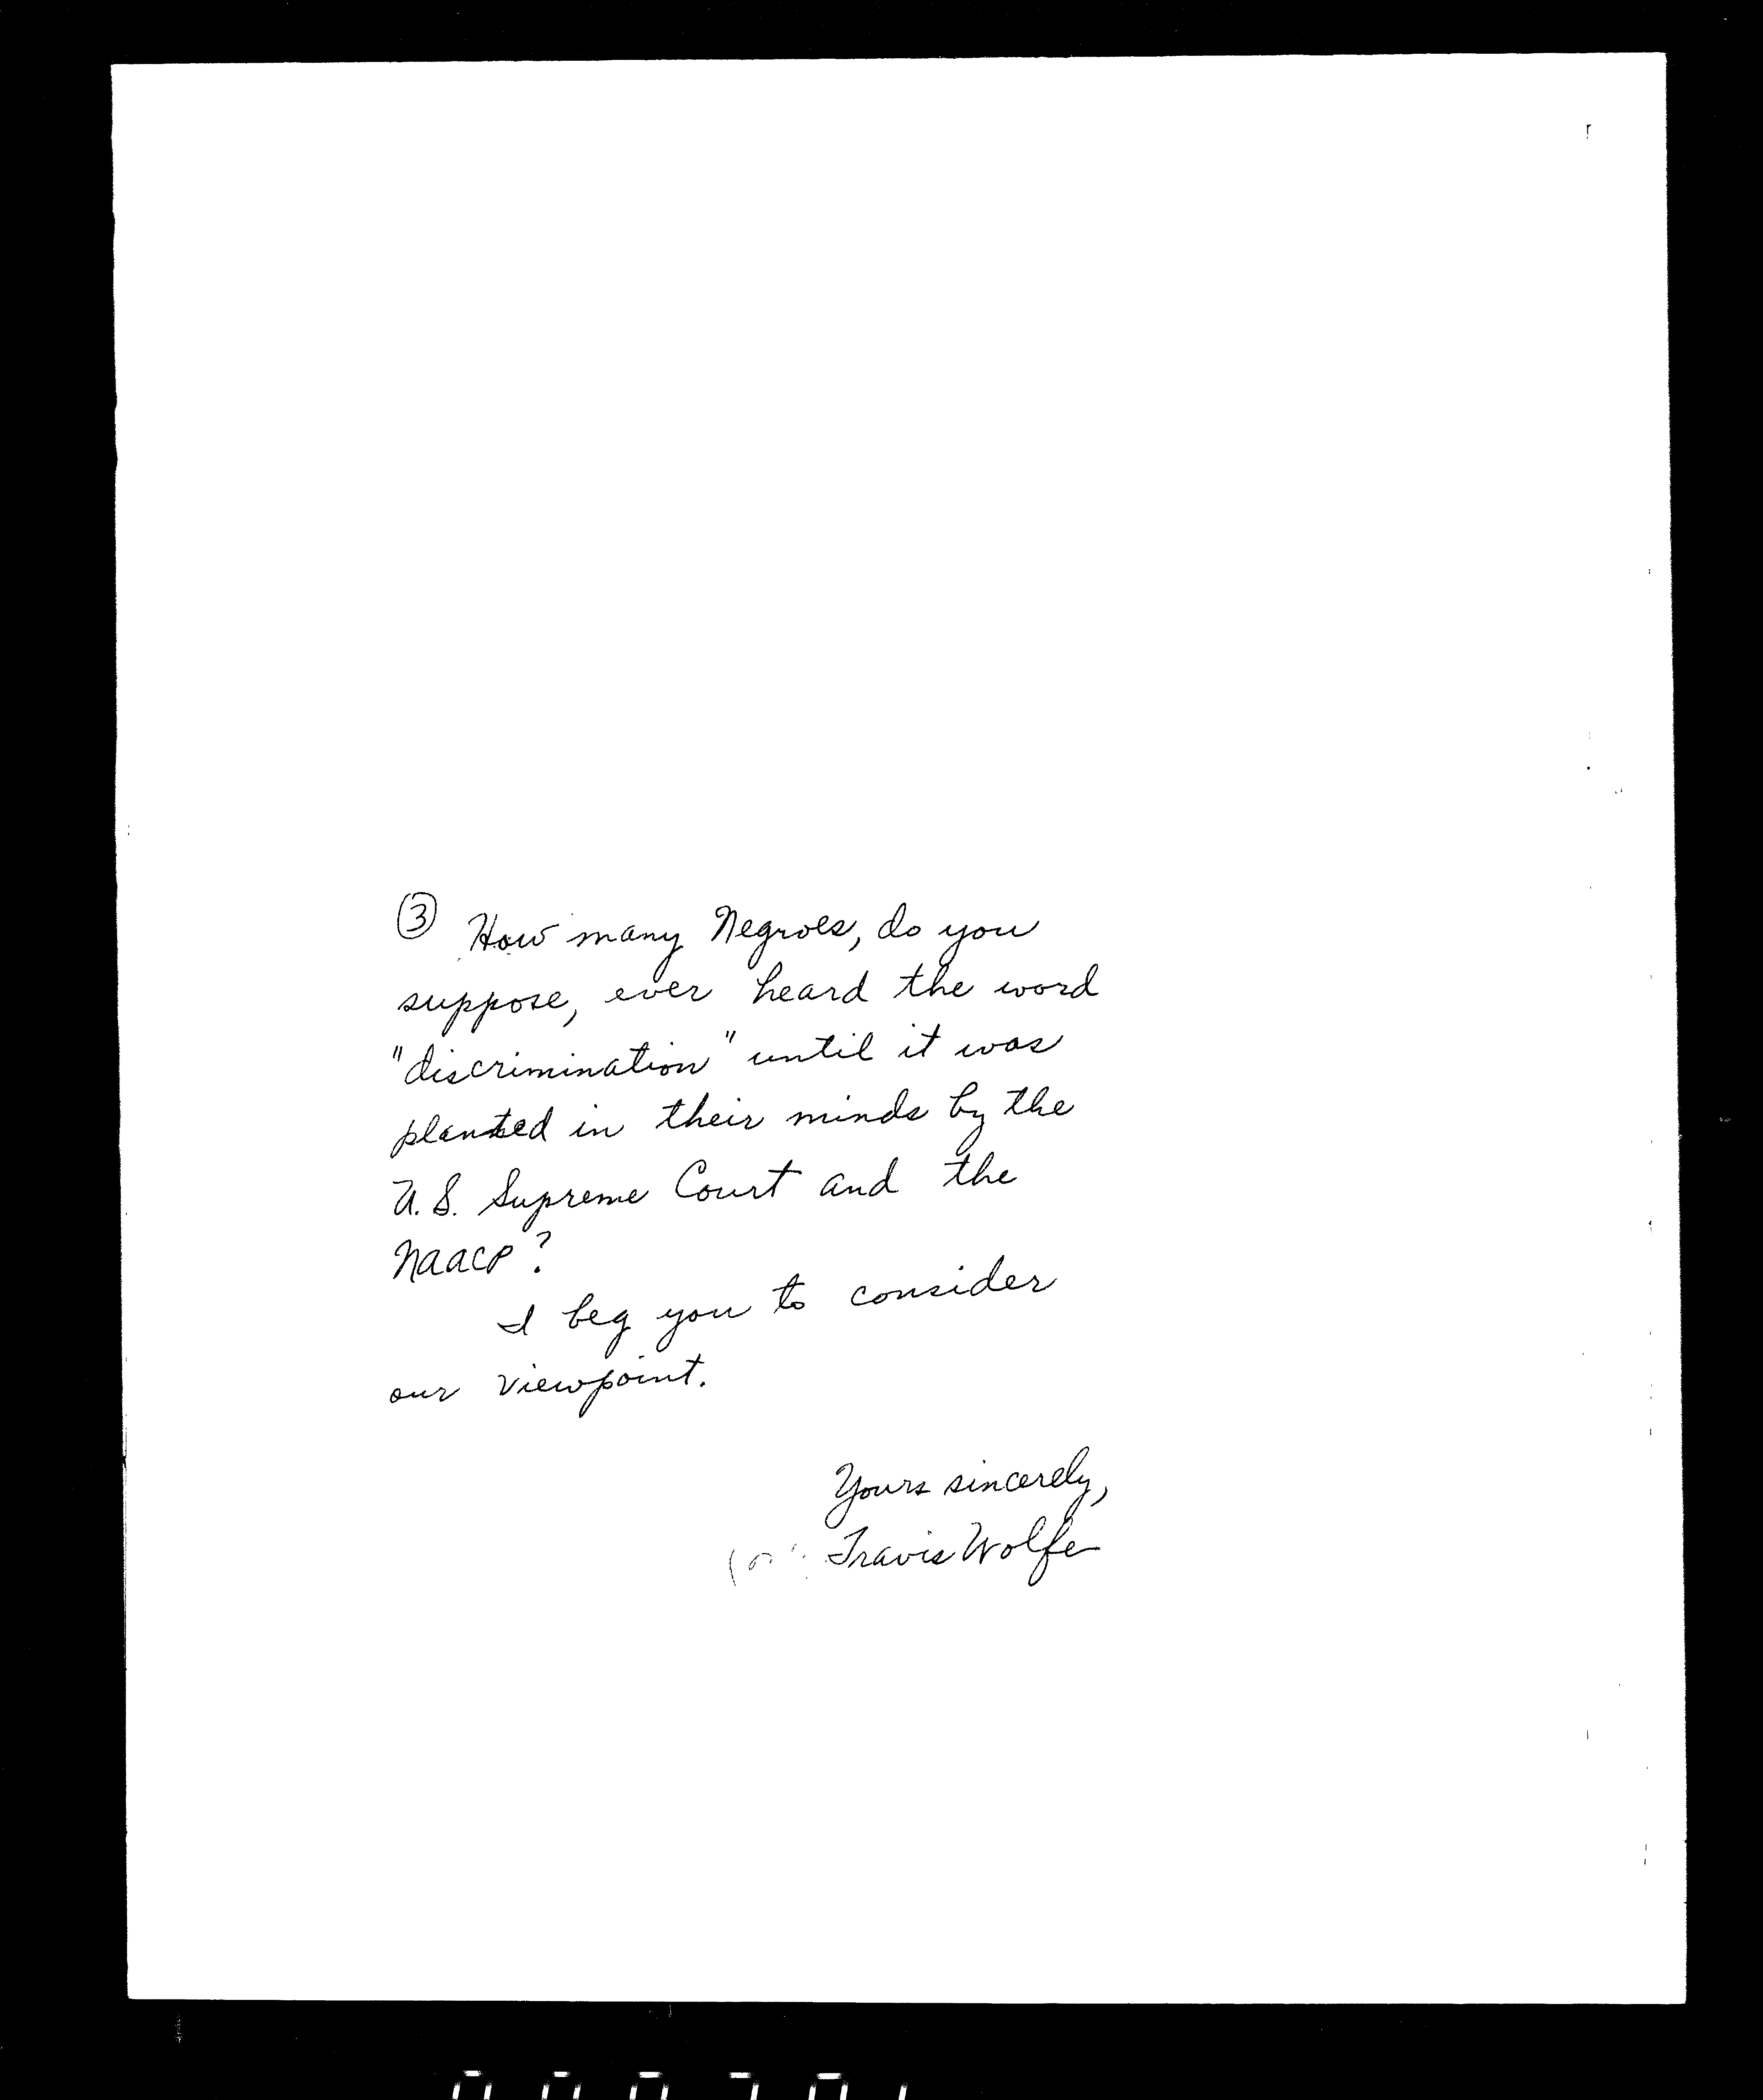 ③ How many Negroes, do you
suppose, ever heard the word
"discrimination" until it was
planted in their minds by the
U.S. Supreme Court and the
NAACP?
I beg you to consider
our viewpoint.
Yours sincerely,
Travis Wolfe